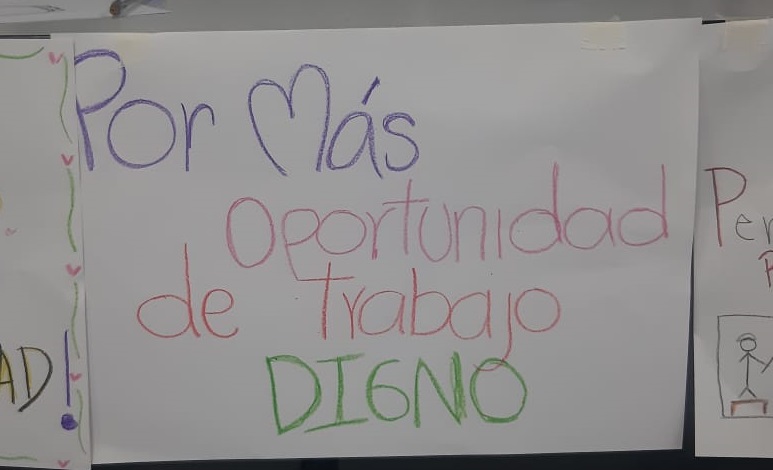 Por Más
Oportunidad
de Trabajo
DIGNO
AD!
Per